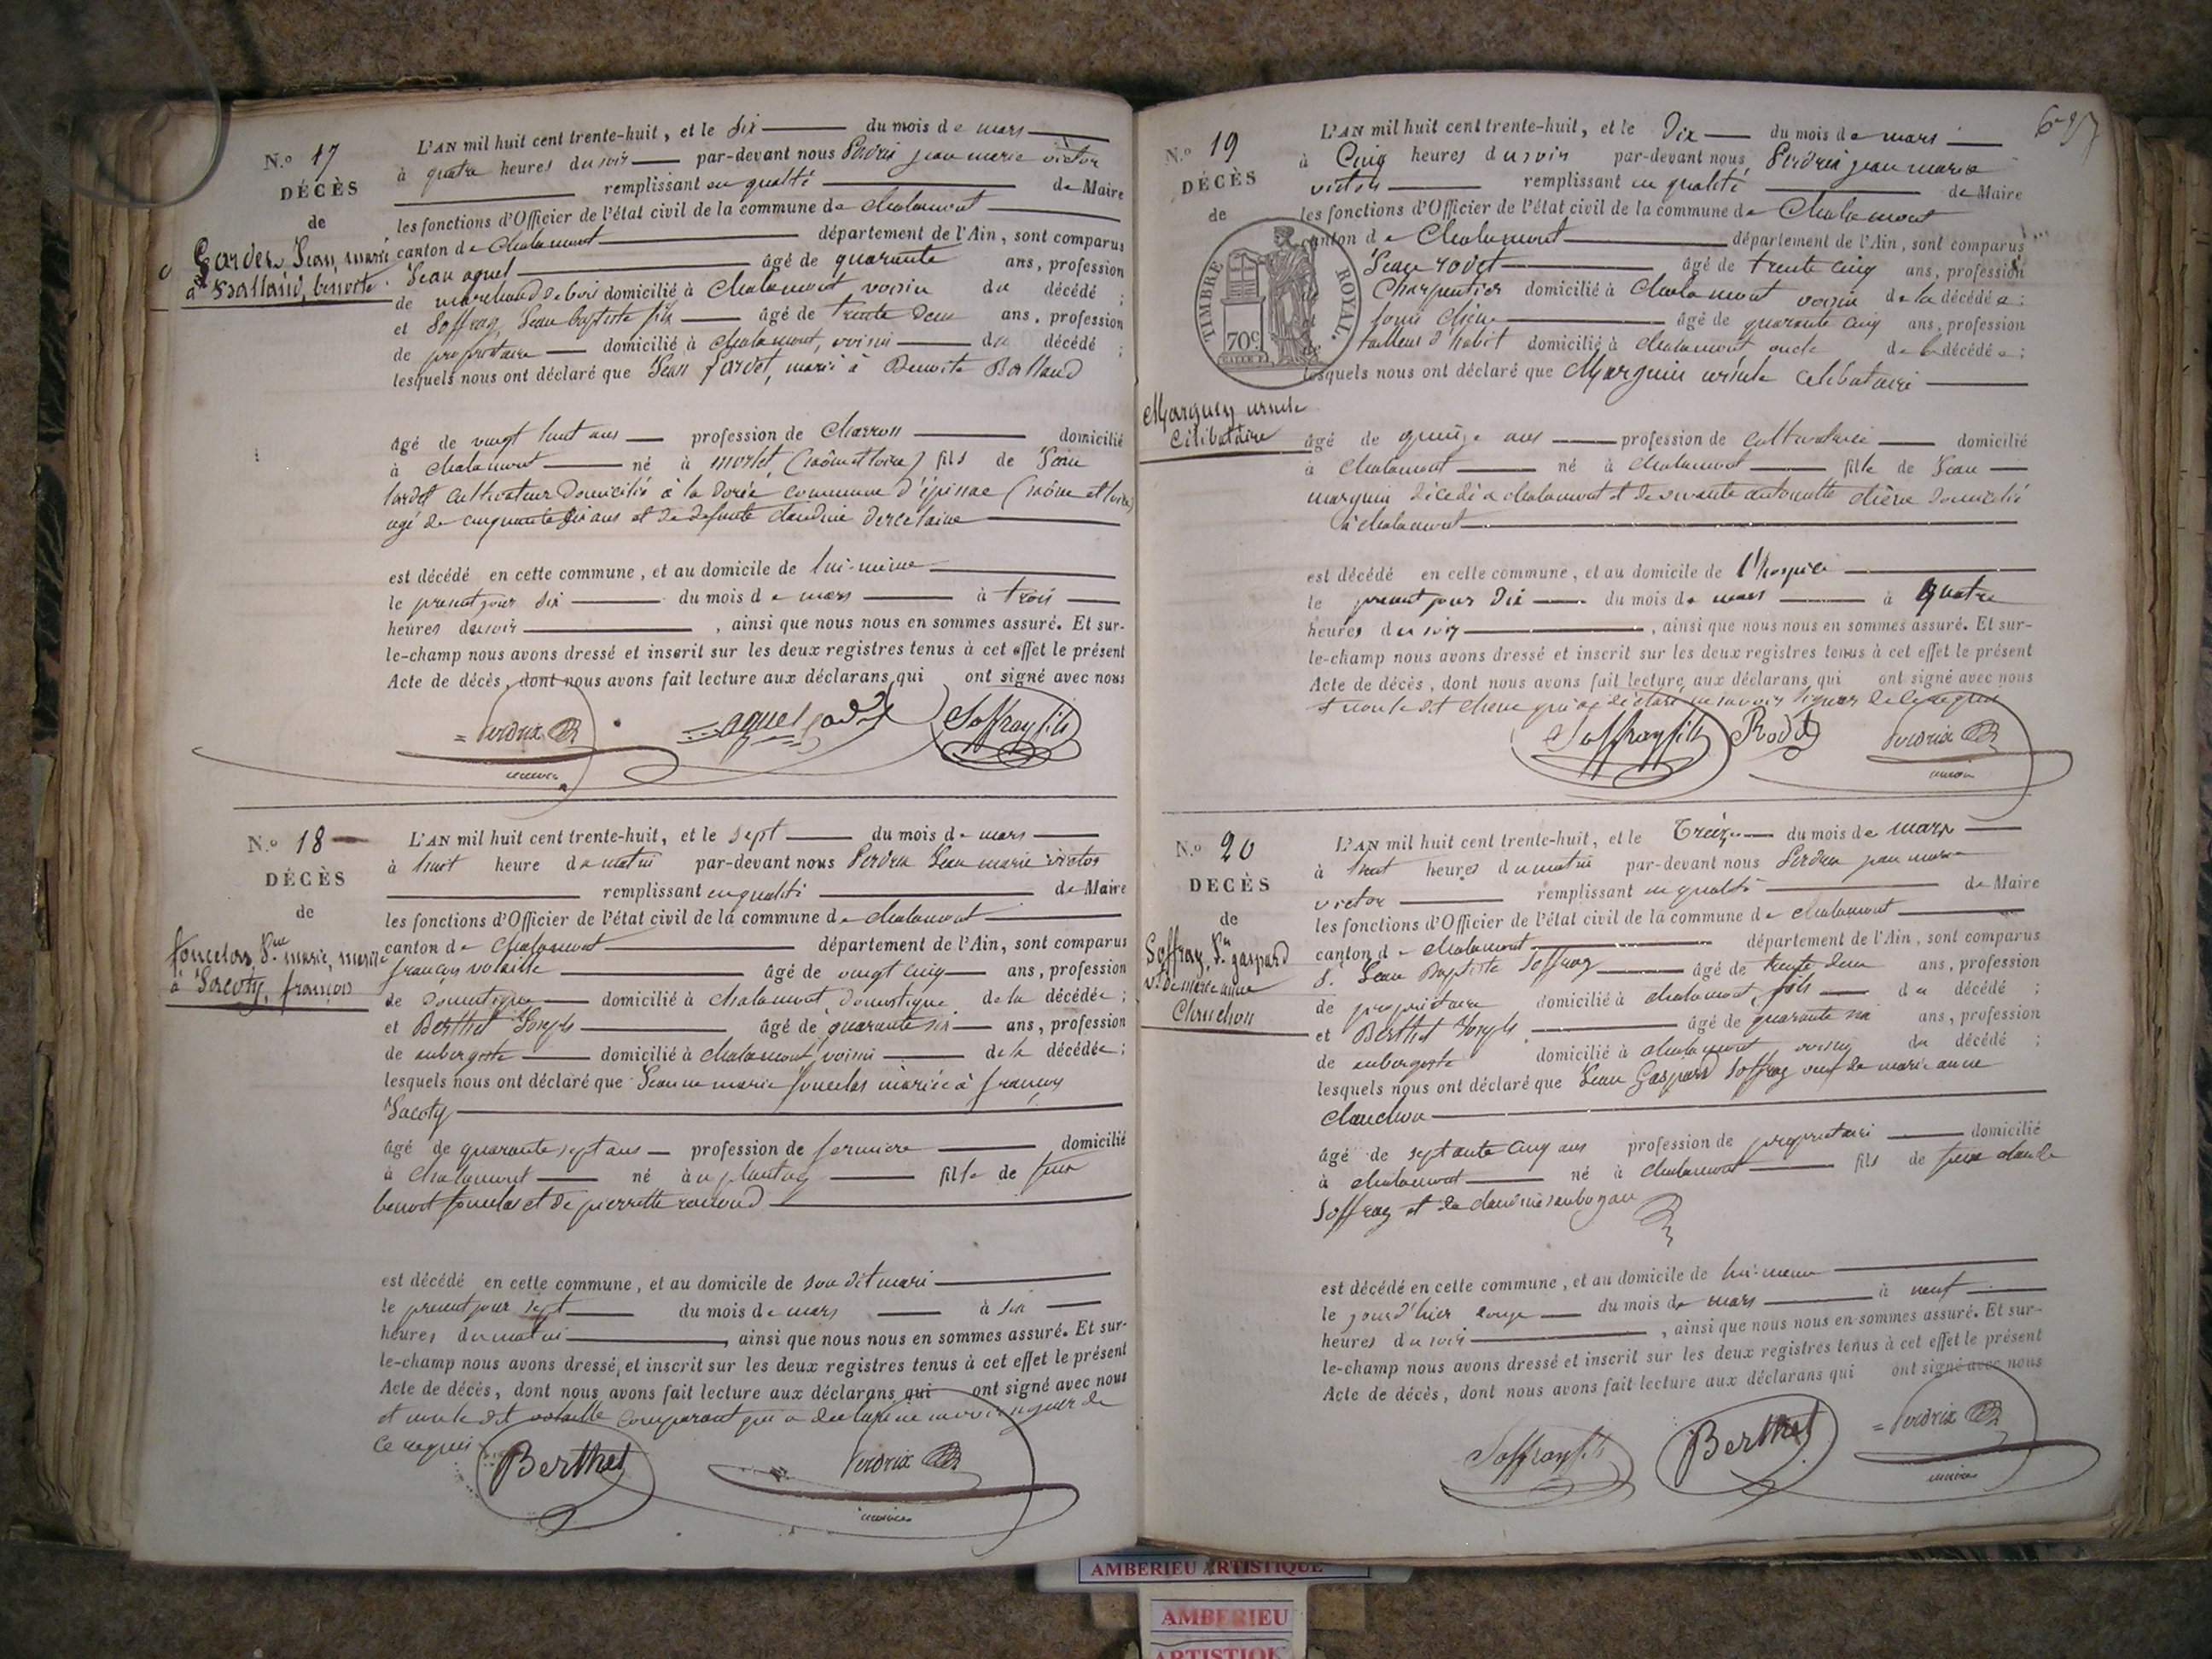 N.o 17
DÉCÈS
de
Jean, marié
à Balland, benoite
L'AN mil huit cent trente-huit, et le six du mois de mars
à quatre heures du soir par-devant nous Perdrix jean marie victor
remplissant en qualité de Maire
les fonctions d'Officier de l'état civil de la commune de chalamont
canton de chalamont département de l'Ain, sont comparus
Jean aguel âgé de quarante ans, profession
de marchand de bois domicilié à chalamont voisin du décédé ;
et Soffray, Jean baptiste fils âgé de trente deux ans, profession
de propriétaire domicilié à chalamont, voisin du décédé ;
lesquels nous ont déclaré que Jean marié à Benoite Balland
âgé de vingt huit ans profession de charron domicilié
à chalamont né à (saône et loire) fils de Jean
cultivateur domicilié à la commune d'épinac (saône et loire)
agé de cinquante six ans et de defunte claudine
est décédé en cette commune, et au domicile de lui-même
le présent jour six du mois de mars à trois
heures du soir , ainsi que nous nous en sommes assuré. Et sur-
le-champ nous avons dressé et inscrit sur les deux registres tenus à cet effet le présent
Acte de décès, dont nous avons fait lecture aux déclarans qui ont signé avec nous
Perdrix aguel Soffray fils
maire
N.o 18
DÉCÈS
de
foucelas, J.ne marie, mariée
à Jacoty, françois
L'AN mil huit cent trente-huit, et le sept du mois de mars
à huit heure du matin par-devant nous Perdrix Jean marie victor
remplissant en qualité de Maire
les fonctions d'Officier de l'état civil de la commune de chalamont
canton de chalamont département de l'Ain, sont comparus
françois volaille âgé de vingt cinq ans, profession
de domestique domicilié à chalamont, domestique de la décédée ;
et Berthet Joseph âgé de quarante six ans, profession
de aubergiste domicilié à chalamont, voisin de la décédée ;
lesquels nous ont déclaré que Jeanne marie foucelas mariée à françois
Jacoty
âgé de quarante sept ans profession de fermière domicilié
à chalamont né au plantay fille de feu
benoit foucelas et de pierrette
est décédé en cette commune, et au domicile de son dit mari
le présent jour sept du mois de mars à six
heures du matin , ainsi que nous nous en sommes assuré. Et sur-
le-champ nous avons dressé et inscrit sur les deux registres tenus à cet effet le présent
Acte de décès, dont nous avons fait lecture aux déclarans qui ont signé avec nous
et non le dit volaille comparant qui a déclaré ne savoir signer de
ce requis
Berthet Perdrix
maire
N.o 19
DÉCÈS
de
TIMBRE ROYAL
70c
Marguin ursule
célibataire
L'AN mil huit cent trente-huit, et le Dix du mois de mars
à Cinq heures du soir par-devant nous Perdrix jean marie
victor remplissant en qualité de Maire
les fonctions d'Officier de l'état civil de la commune de Chalamont
canton de Chalamont département de l'Ain, sont comparus
Jean rodet âgé de trente cinq ans, profession
de Charpentier domicilié à Chalamont voisin de la décédée ;
et louis chêne âgé de quarante cinq ans, profession
de tailleur d'habit domicilié à chalamont oncle de la décédée ;
lesquels nous ont déclaré que Marguin ursule célibataire
âgé de quinze ans profession de cultivatrice domicilié
à chalamont né à chalamont fille de Jean
marguin décédé à chalamont et de vivante antoinette chêne domiciliée
à chalamont
est décédé en cette commune, et au domicile de l'hospice
le présent jour dix du mois de mars à quatre
heures du soir , ainsi que nous nous en sommes assuré. Et sur-
le-champ nous avons dressé et inscrit sur les deux registres tenus à cet effet le présent
Acte de décès, dont nous avons fait lecture aux déclarans qui ont signé avec nous
et non le dit chêne qui a déclaré ne savoir signer de ce requis
Soffray fils Rodet Perdrix
maire
N.o 20
DÉCÈS
de
Soffray, J.n gaspard
v.f de marie anne
Clauchon
L'AN mil huit cent trente-huit, et le treize du mois de mars
à huit heures du matin par-devant nous Perdrix jean marie
victor remplissant en qualité de Maire
les fonctions d'Officier de l'état civil de la commune de chalamont
canton de chalamont département de l'Ain, sont comparus
S. Jean Baptiste Soffray âgé de trente deux ans, profession
de propriétaire domicilié à chalamont, fils du décédé ;
et Berthet Joseph âgé de quarante six ans, profession
de aubergiste domicilié à chalamont voisin du décédé ;
lesquels nous ont déclaré que Jean Gaspard Soffray veuf de marie anne
clauchon
âgé de septante cinq ans profession de propriétaire domicilié
à chalamont né à chalamont fils de feu claude
Soffray et de claudine
est décédé en cette commune, et au domicile de lui-même
le jour d'hier douze du mois de mars à neuf
heures du soir , ainsi que nous nous en sommes assuré. Et sur-
le-champ nous avons dressé et inscrit sur les deux registres tenus à cet effet le présent
Acte de décès, dont nous avons fait lecture aux déclarans qui ont signé avec nous
Soffray fils Berthet Perdrix
maire
AMBERIEU ARTISTIQUE
AMBERIEU
ARTISTIQUE